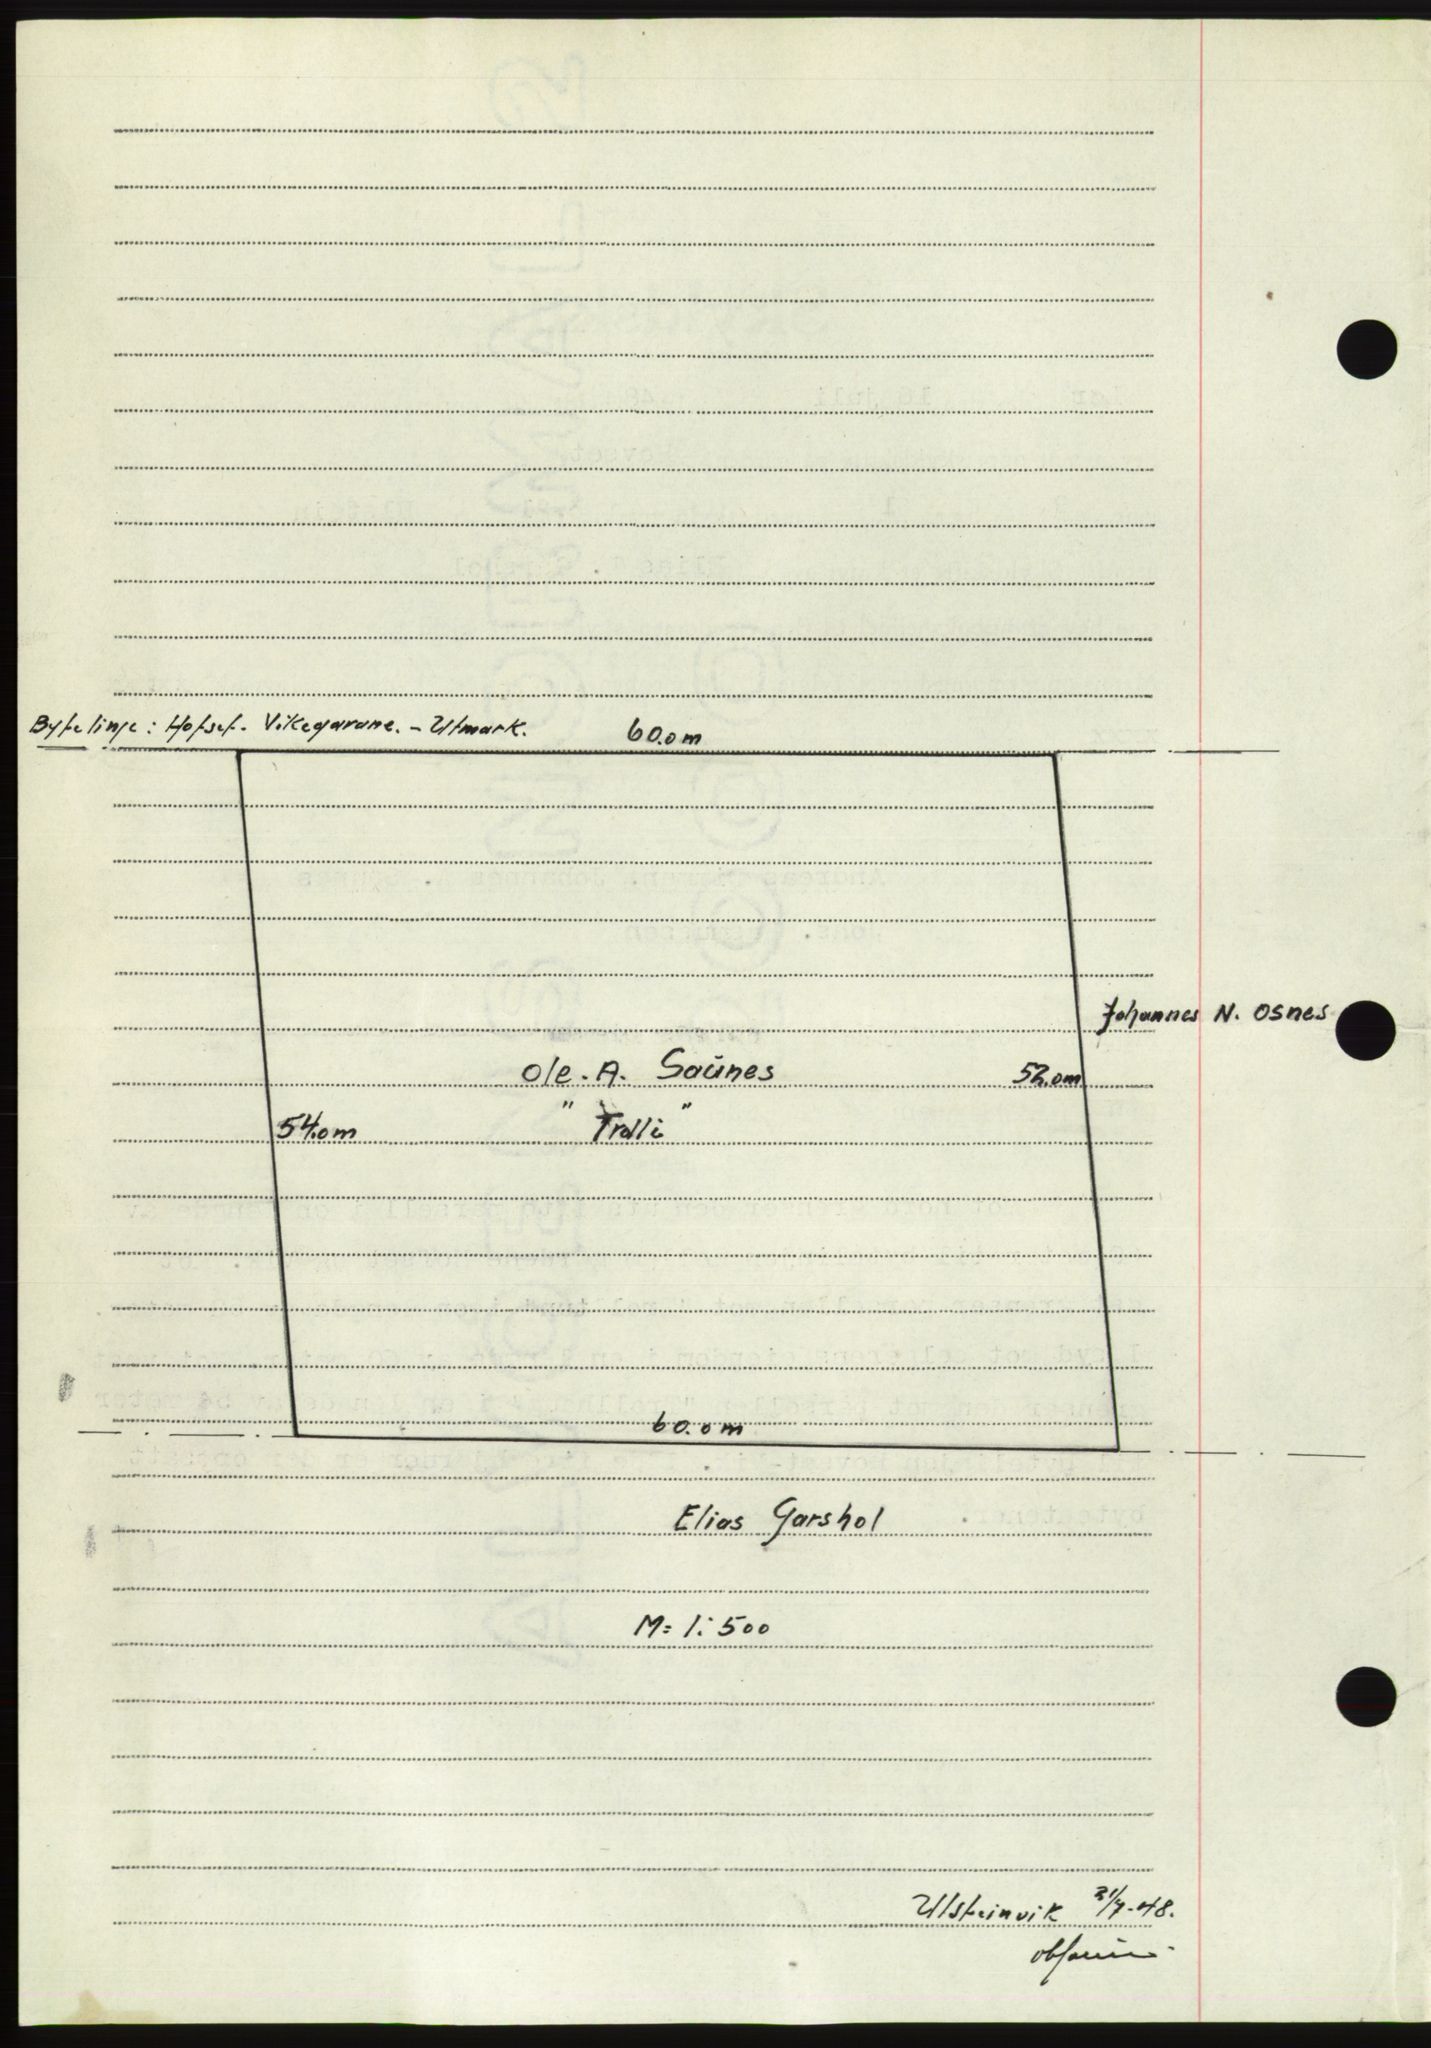 Bytelinje: Hofset. Vikegarane. - Utmark.
60.0m
Johannes N. Osnes
Ole. A. Saúnes
52.0m
" "
54.0m
Trolli
60.0m
Elias Garshol
M= 1:500
Ulsteinvik 21/7-48.